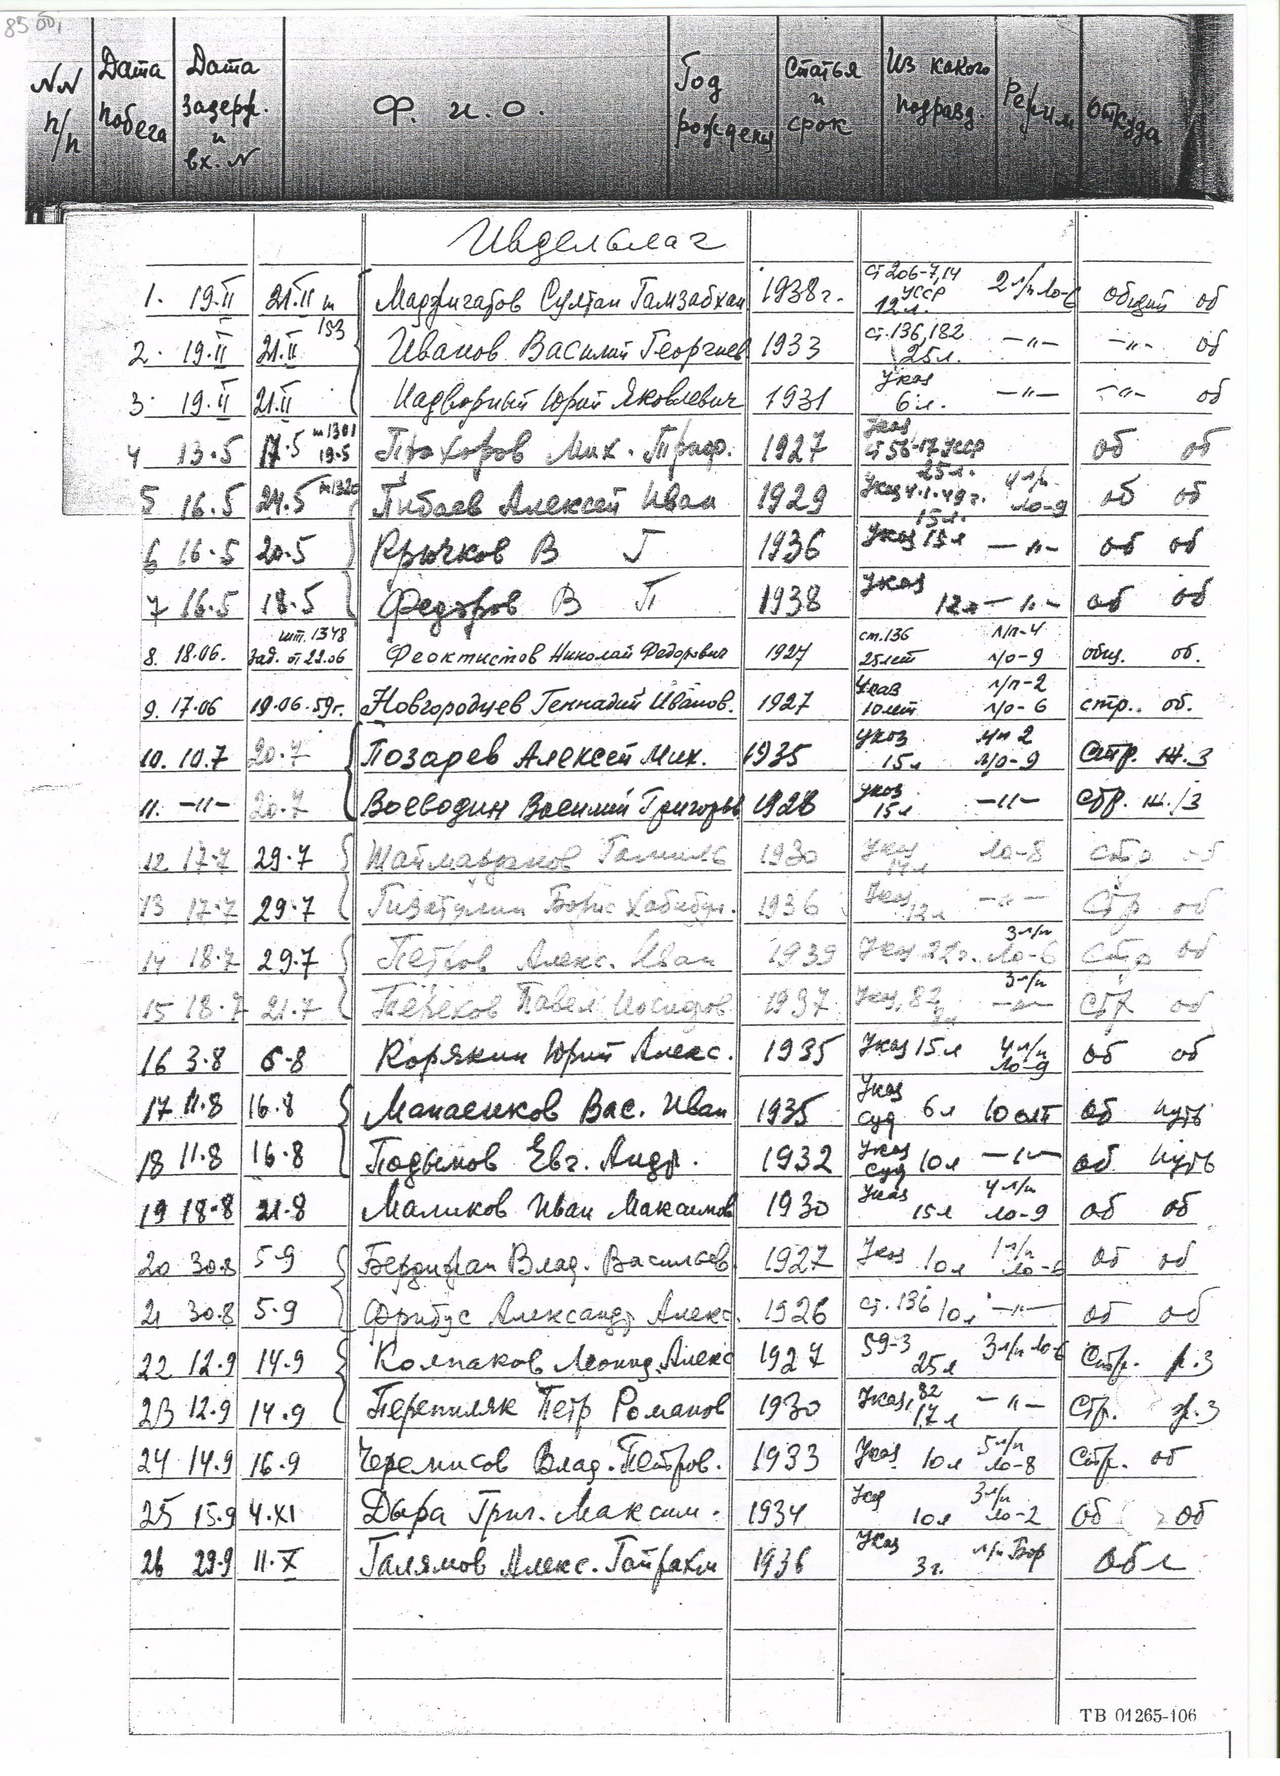 85 об,
№№ п/п Дата побега Дата задерж. и вх. № Ф. и. о. Год рождения Статья и срок Из какого подразд. Режим Откуда
Ивдельлаг
1. 19.II 21.II т 153 Маджигатов Султан Гамзабхан 1938 г. ст 206-7,14 УССР 12 л. 2 л/п ло-6 общий об
2. 19.II 21.II Иванов Василий Георгиев 1933 ст. 136, 182 25 л. —"— —"— об
3. 19.II 21.II Надворный Юрий Яковлевич 1931 Указ 6 л. —"— —"— об
4 13.5 17.5 т 1301 19.5 Прохоров Мих. Траф. 1927 Указ ст 56-17 УССР 25 л. об об
5 16.5 24.5 Пибаев Алексей Иван 1929 Указ 4.1.49 г. 15 л. 4 л/п ло-9 об об
6 16.5 20.5 Крючков В Г 1936 Указ 15 л —"— об об
7 16.5 18.5 Федоров В П 1938 Указ 12 л —"— об об
8. 18.06. шт. 1348 зад. от 22.06 Феоктистов Николай Федорович 1927 ст. 136 25 лет л/п-4 л/о-9 общ. об.
9. 17.06 19.06.59 г. Новгородцев Геннадий Иванов. 1927 Указ 10 лет л/п-2 л/о-6 стр. об.
10. 10.7 20.7 Позарев Алексей Мих. 1935 Указ 15 л л/п 2 л/о-9 стр. ж.з
11. —"— 20.7 Воеводин Василий Григорьев 1928 Указ 15 л —"— стр. ж./з
12 17.7 29.7 Шаймарданов Гамиль 1930 Указ ло-8 стр об
13 17.7 29.7 Гизатулин Борис Хабибул. 1936 Указ 12 л —"— стр об
14 18.7 29.7 Петров Алекс. Иван 1939 Указ 3 л/п ло-6 стр об
15 18.7 21.7 Терехов Павел 1937 Указ, 82 3 л/п —"— стр об
16 3.8 6.8 Корякин Юрий Алекс. 1935 Указ 15 л 4 л/п ло-9 об об
17 11.8 16.8 Манаенков Вас. Иван 1935 Указ суд 6 л 10 олп об путь
18 11.8 16.8 Подымов Евг. Андр. 1932 Указ суд 10 л —"— об путь
19 18.8 21.8 Маликов Иван Максимов 1930 Указ 15 л 4 л/п ло-9 об об
20 30.8 5.9 Влад. Васильев. 1927 Указ 10 л 1 л/п ло-6 об об
21 30.8 5.9 Фрибус Александр Алекс. 1926 ст. 136 10 л —"— об об
22 12.9 14.9 Колпаков Леонид Алекс 1927 59-3 25 л 3 л/п ло-6 стр. р.з
23 12.9 14.9 Перепиляк Петр Романов 1930 Указ, 82 17 л —"— стр. р.з
24 14.9 16.9 Черемисов Влад. Петров. 1933 Указ 10 л 5 л/п ло-8 стр. об
25 15.9 4.XI Дыра Григ. Максим. 1934 Указ 10 л 3 л/п ло-2 об об
26 29.9 11.X Галямов Алекс. 1936 Указ 3 г. л/п Бор обл
ТВ 01265-106